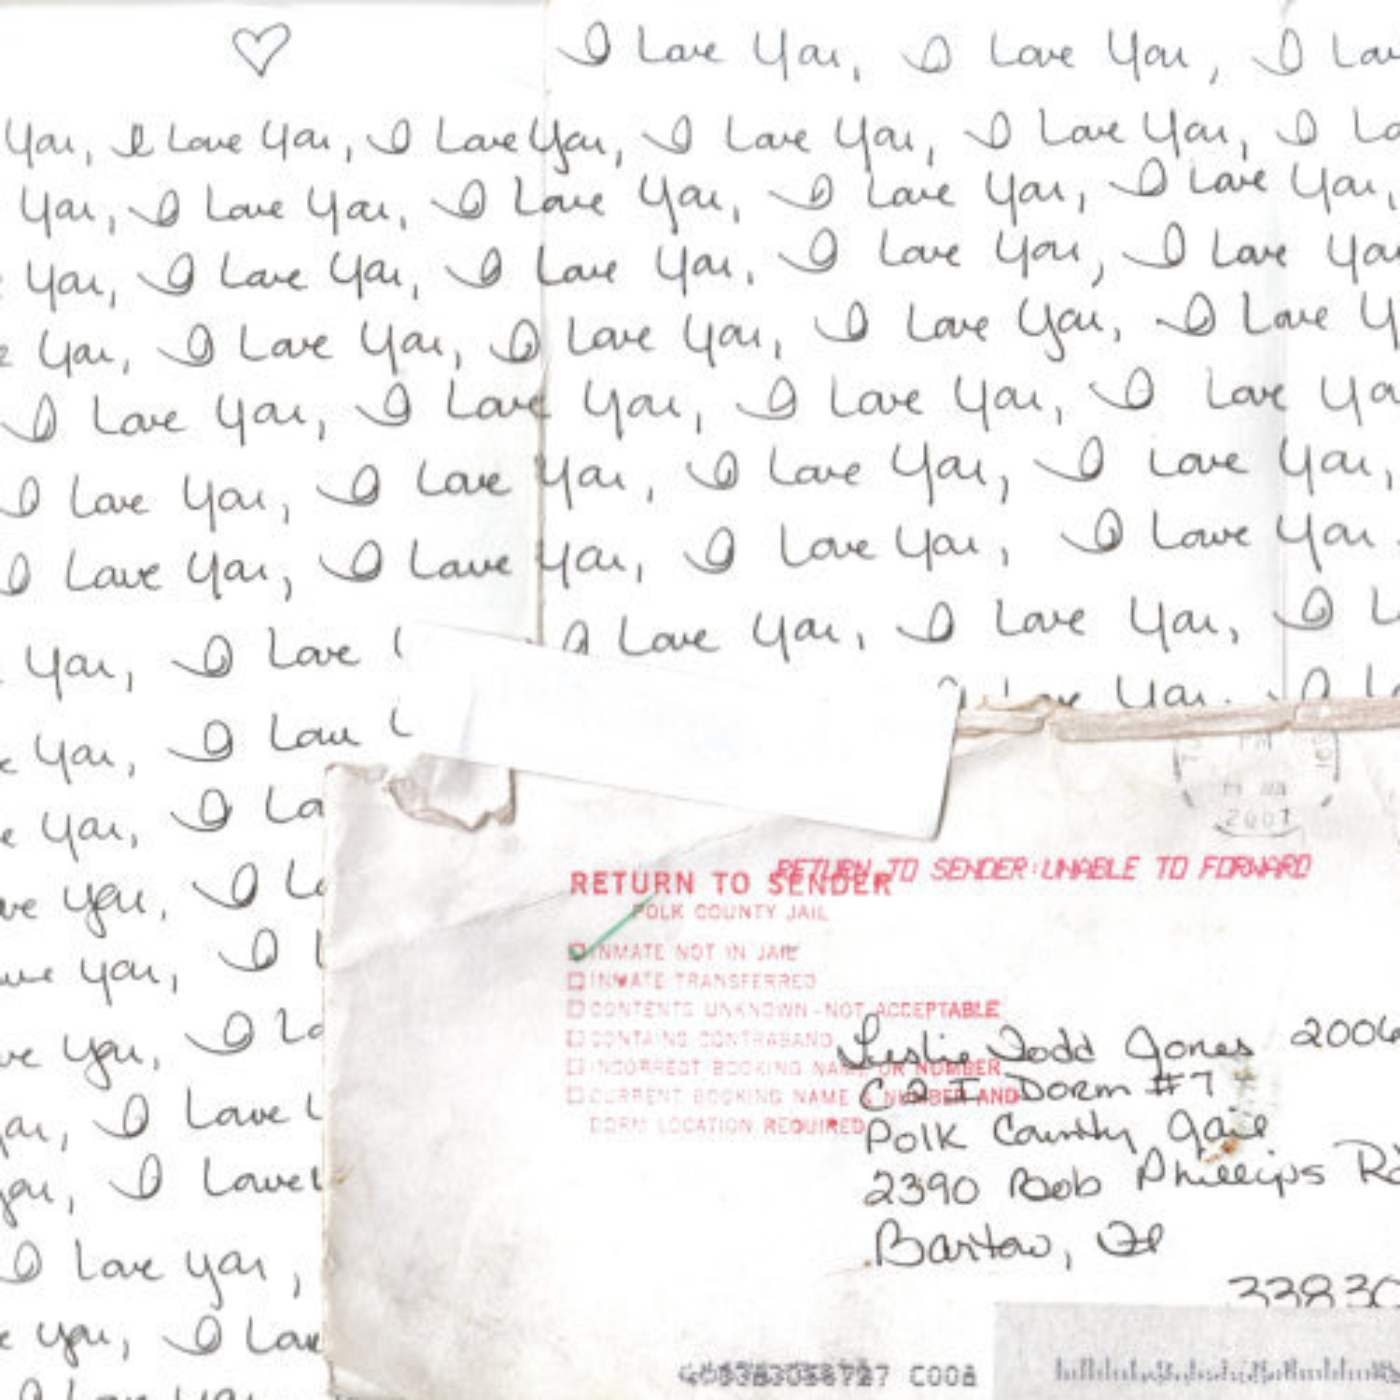 I Love You, I Love You, I Lov
You, I Love You, I Love You, I Love You, I Love You, I Lo
You, I Love You, I Love You, I Love You, I Love You,
You, I Love You, I Love You, I Love You, I Love You
You, I Love You, I Love You, I Love You, I Love Y
I Love You, I Love You, I Love You, I Love You
I Love You, I Love You, I Love You, I Love You,
I Love You, I Love You, I Love You, I Love You
You, I Love I Love You, I Love You, I L
Love You. I Lo
You, I Love
You, I Lo
ve you, I Lo
you, I L
ve you, I Lo
I Love
you, I Love
I love you,
you, I Love
I Love You
2001
RETURN TO SENDER:UNABLE TO FORWARD
RETURN TO SENDER
POLK COUNTY JAIL
INMATE NOT IN JAIL
INMATE TRANSFERRED
CONTENTS UNKNOWN-NOT ACCEPTABLE
CONTAINS CONTRABAND
INCORRECT BOOKING NAME OR NUMBER
CURRENT BOOKING NAME & NUMBER AND
DORM LOCATION REQUIRED
Leslie Todd Jones 2004
C2I Dorm #7
Polk County Jail
2390 Bob Phillips Rd
Bartow, Fl
33830
C008